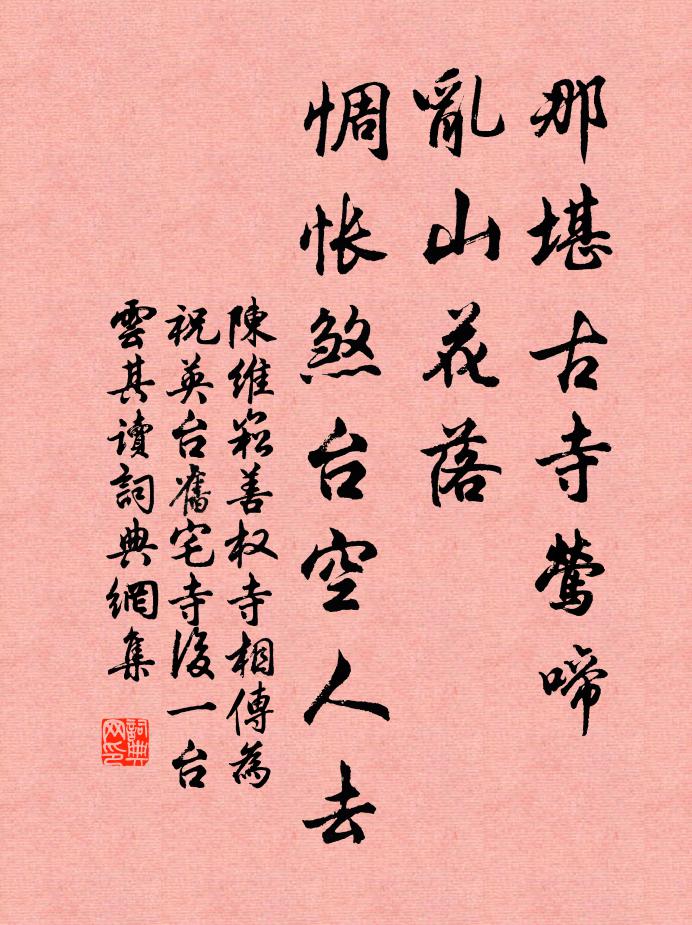 那堪古寺鶯啼
亂山花落
惆怅煞台空人去
陳維崧善权寺相傳為
祝英台舊宅寺後一台
雲其讀詞典網集
詞典
网印